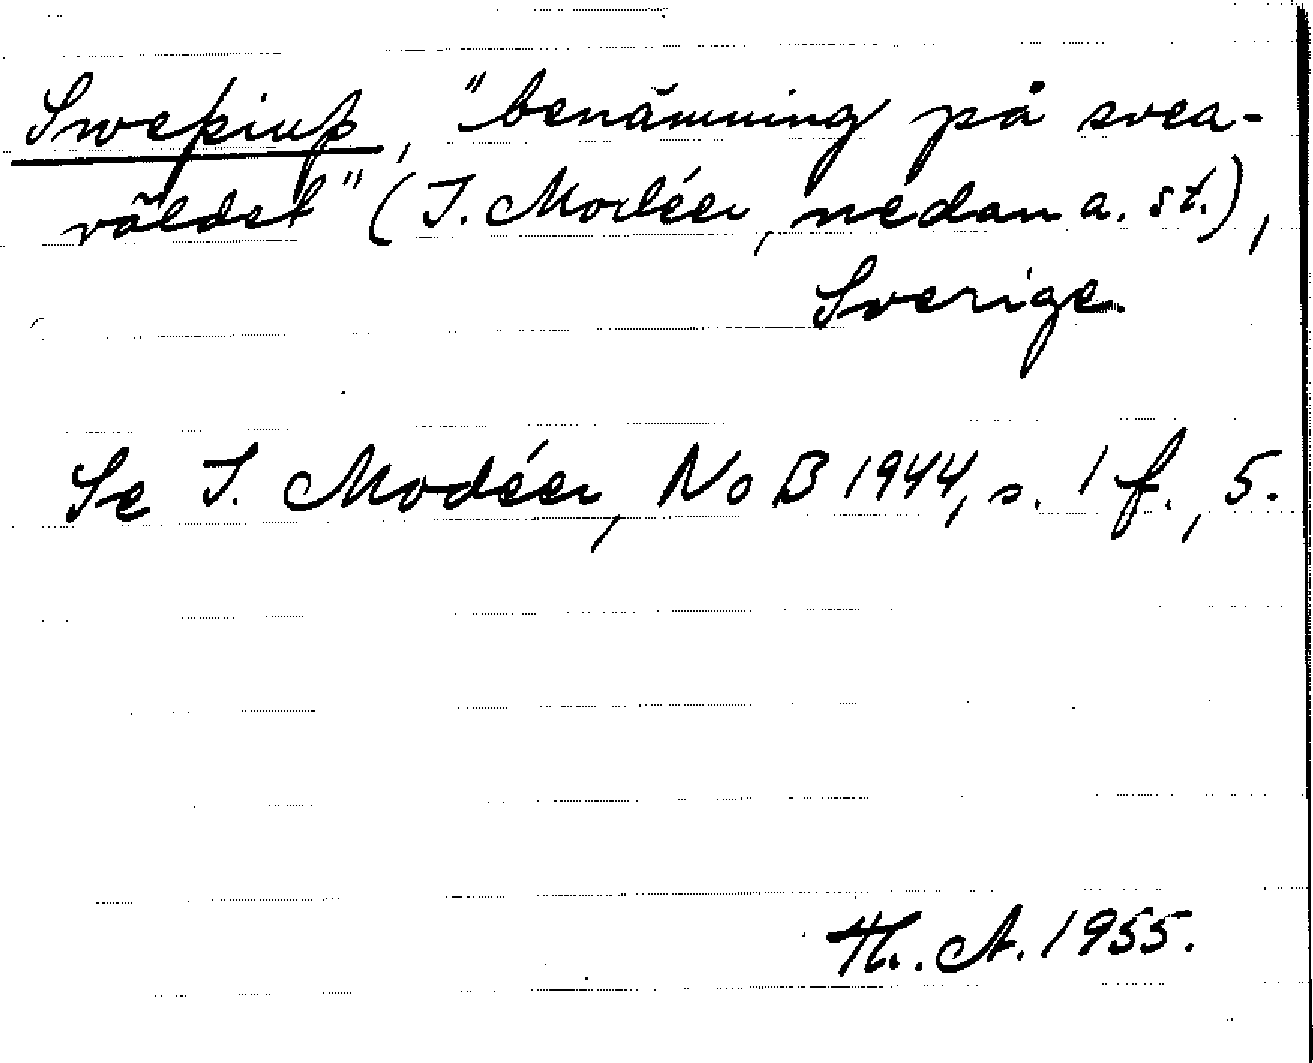 Sweþiuþ, "benämning på svea-
väldet" (I. Modéer, nedan a. st.),
Sverige.
Se I. Modéer, NoB 1944, s. 1 f., 5.
Th. A. 1955.